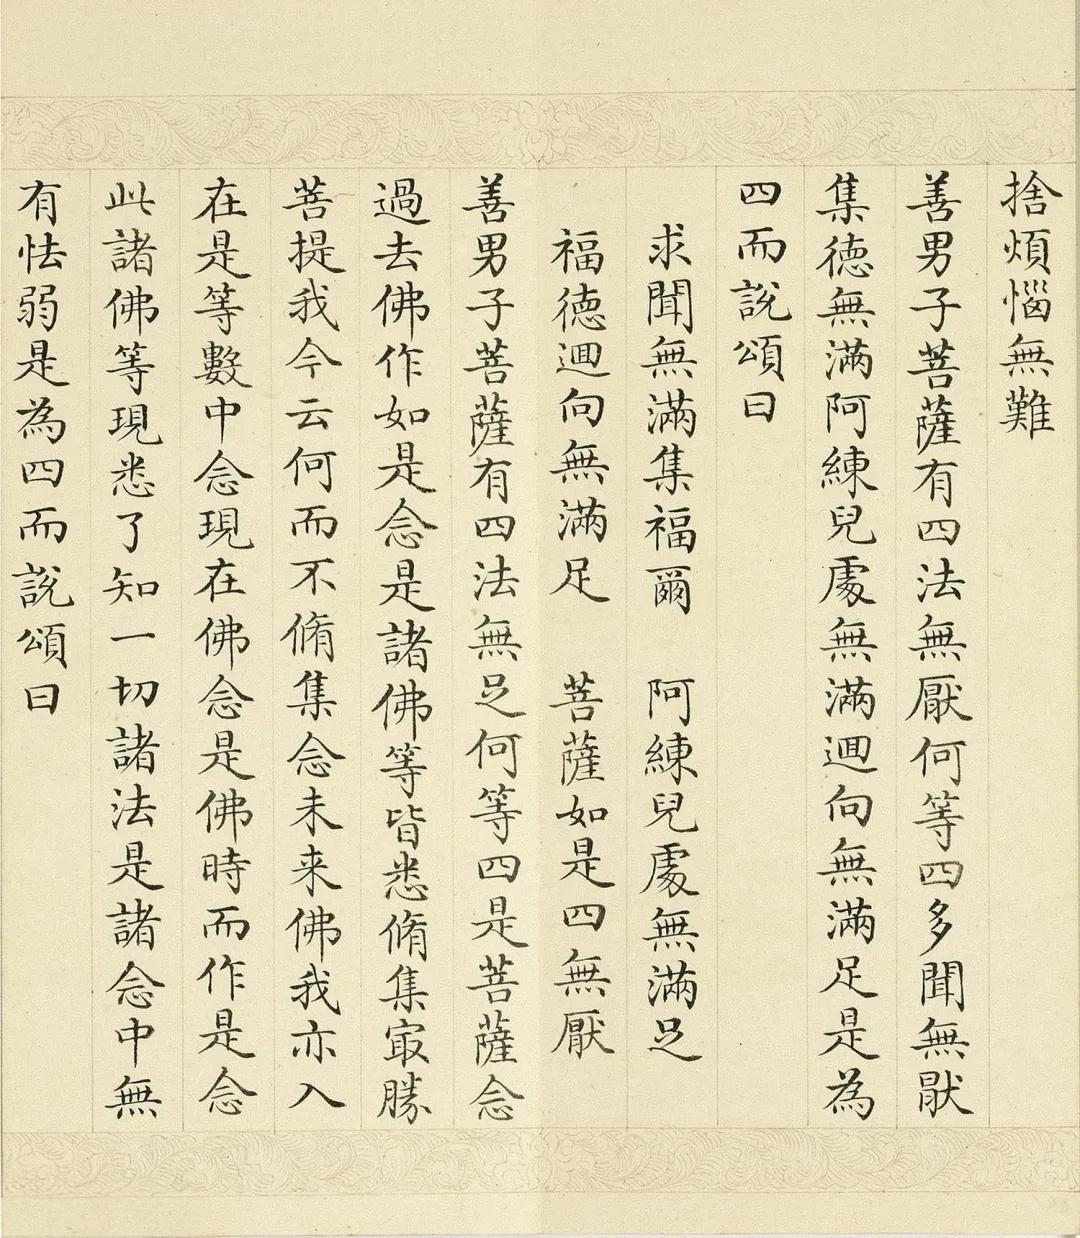 捨煩惱無難
善男子菩薩有四法無厭何等四多聞無猒
集德無滿阿練兒處無滿迴向無滿足是為
四而說頌曰
求聞無滿集福爾　阿練兒處無滿足
福德迴向無滿足　菩薩如是四無厭
善男子菩薩有四法無足何等四是菩薩念
過去佛作如是念是諸佛等皆悉脩集㝡勝
菩提我今云何而不脩集念未来佛我亦入
在是等數中念現在佛念是佛時而作是念
此諸佛等現悉了知一切諸法是諸念中無
有怯弱是為四而說頌曰